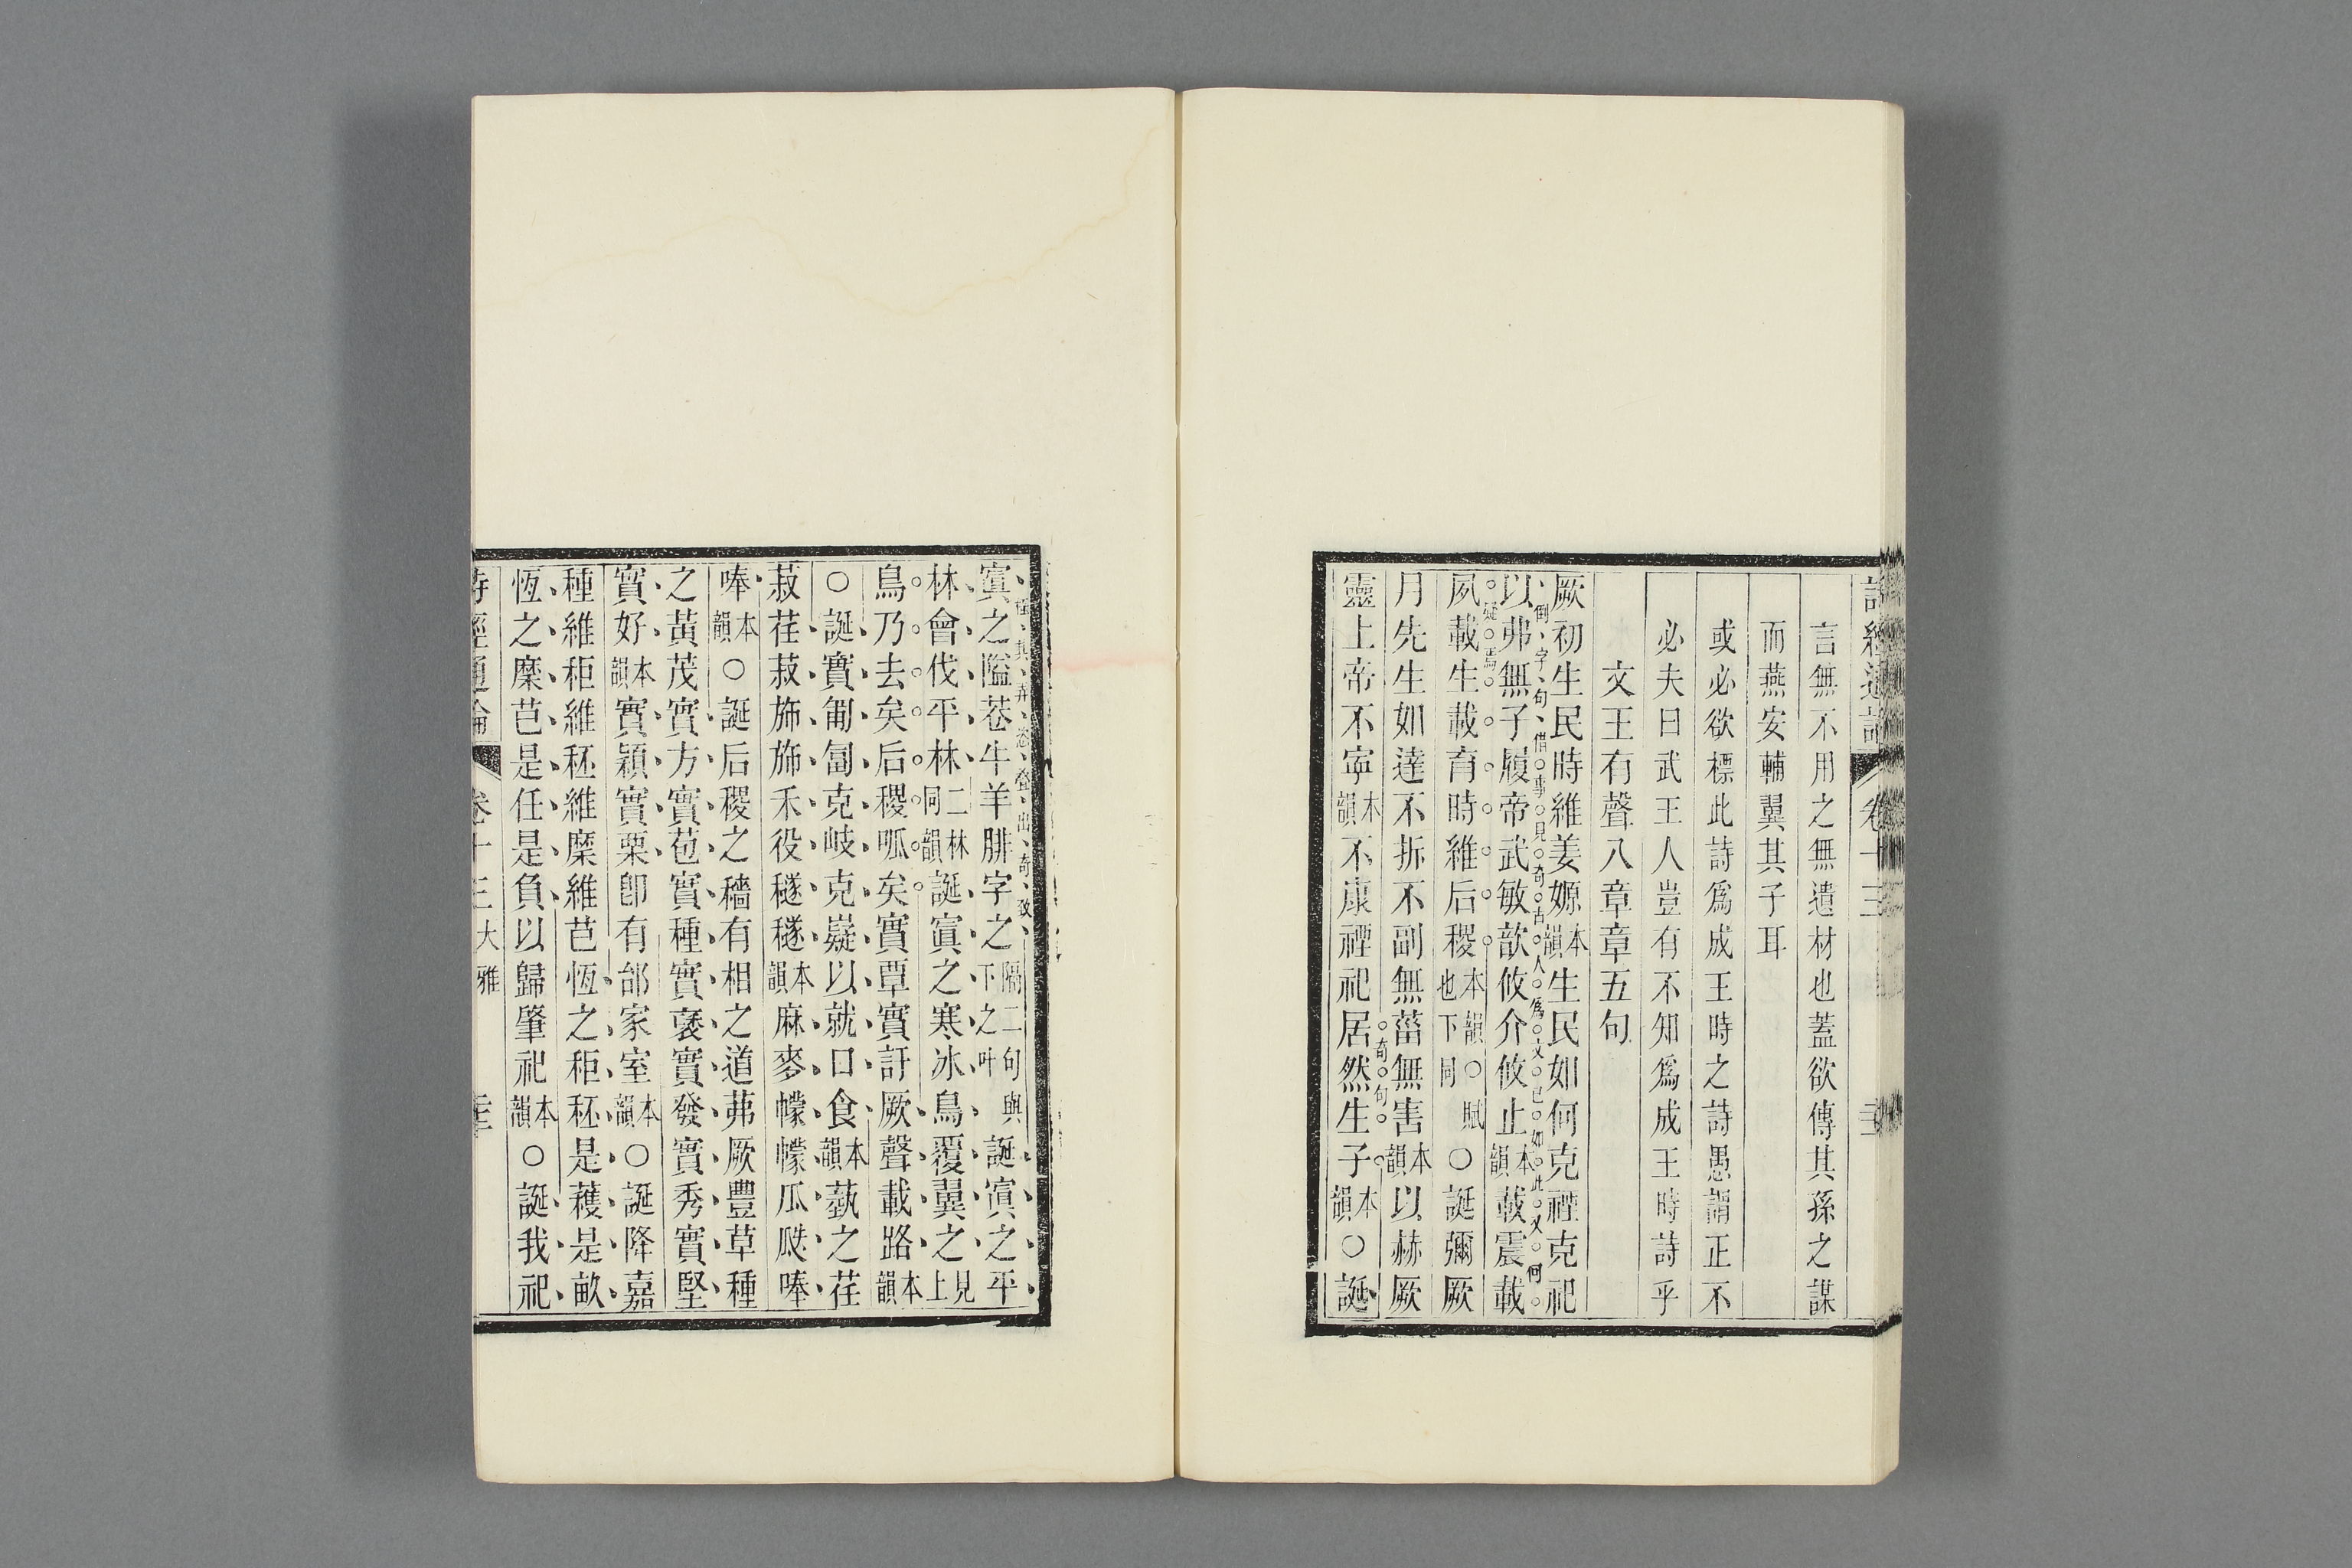 言無不用之無遺材也蓋欲傳其孫之謀
而燕安輔翼其子耳
或必欲標此詩爲成王時之詩愚謂正不
必夫曰武王人豈有不知爲成王時詩乎
文王有聲八章章五句
厥初生民時維姜嫄本韻生民如何克禋克祀
倒字句借事見奇古人爲文已如此又何
以弗無子履帝武敏歆攸介攸止本韻載震載
疑焉
夙載生載育時維后稷本韻也下同○賦○誕彌厥
月先生如達不拆不副無菑無害本韻以赫厥
奇句
靈上帝不寧本韻不康禋祀居然生子本韻○誕
寘之隘巷牛羊腓字之隔二句與下之叶誕寘之平
林會伐平林二林同韻誕寘之寒冰鳥覆翼之見上
鳥乃去矣后稷呱矣實覃實訏厥聲載路本韻
○誕實匍匐克岐克嶷以就口食本韻蓺之荏
菽荏菽旆旆禾役穟穟本韻麻麥幪幪瓜瓞唪
唪本韻○誕后稷之穡有相之道茀厥豐草種
之黃茂實方實苞實種實褎實發實秀實堅
實好本韻實穎實栗卽有邰家室本韻○誕降嘉
種維秬維秠維穈維芑恆之秬秠是穫是畝
恆之穈芑是任是負以歸肇祀本韻○誕我祀
大雅